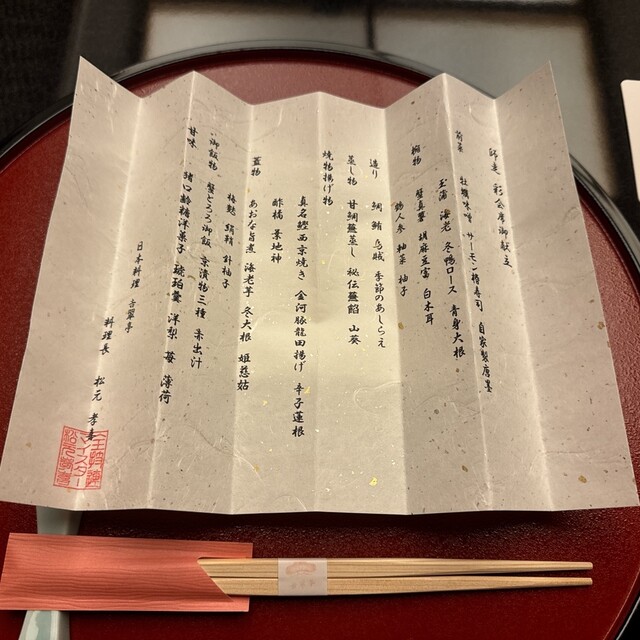 師走 彩会席御献立
前菜 牡蠣味噌 サーモン棒寿司 自家製唐墨
玉蒲 海老 冬鴨ロース 青身大根
椀物 蟹真薯 胡麻豆富 白木耳
鶴人参 軸菜 柚子
造り 鯛 鮪 烏賊 季節のあしらえ
蒸し物 甘鯛蕪蒸し 秘伝蕪餡 山葵
焼物揚げ物
真名鰹西京焼き 金河豚龍田揚げ 辛子蓮根
酢橘 葉地神
蓋物 あおな旨煮 海老芋 冬大根 姫慈姑
梅麩 絹鞘 針柚子
御飯物 蟹ところ御飯 京漬物三種 赤出汁
甘味 猪口齢糖洋菓子 琥珀羹 洋梨 苺 薄荷
日本料理 古翠亭
料理長 松元
マイスター